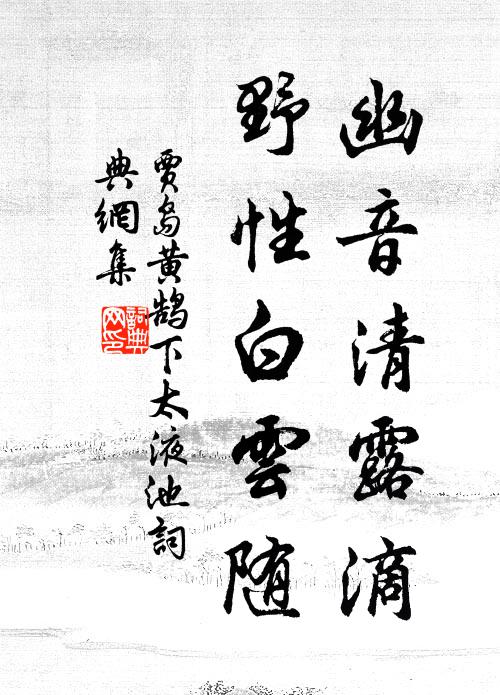 幽音清露滴
野性白雲随
賈島黄鵠下太液池詞
典網集
詞典网印